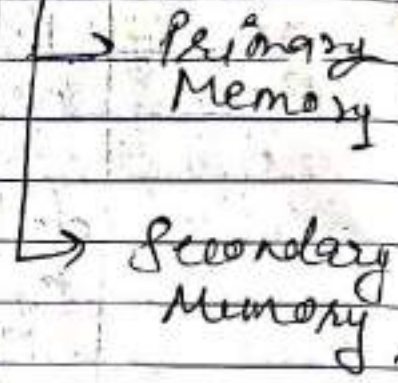 → Primary
Memory
→ Secondary
Memory.